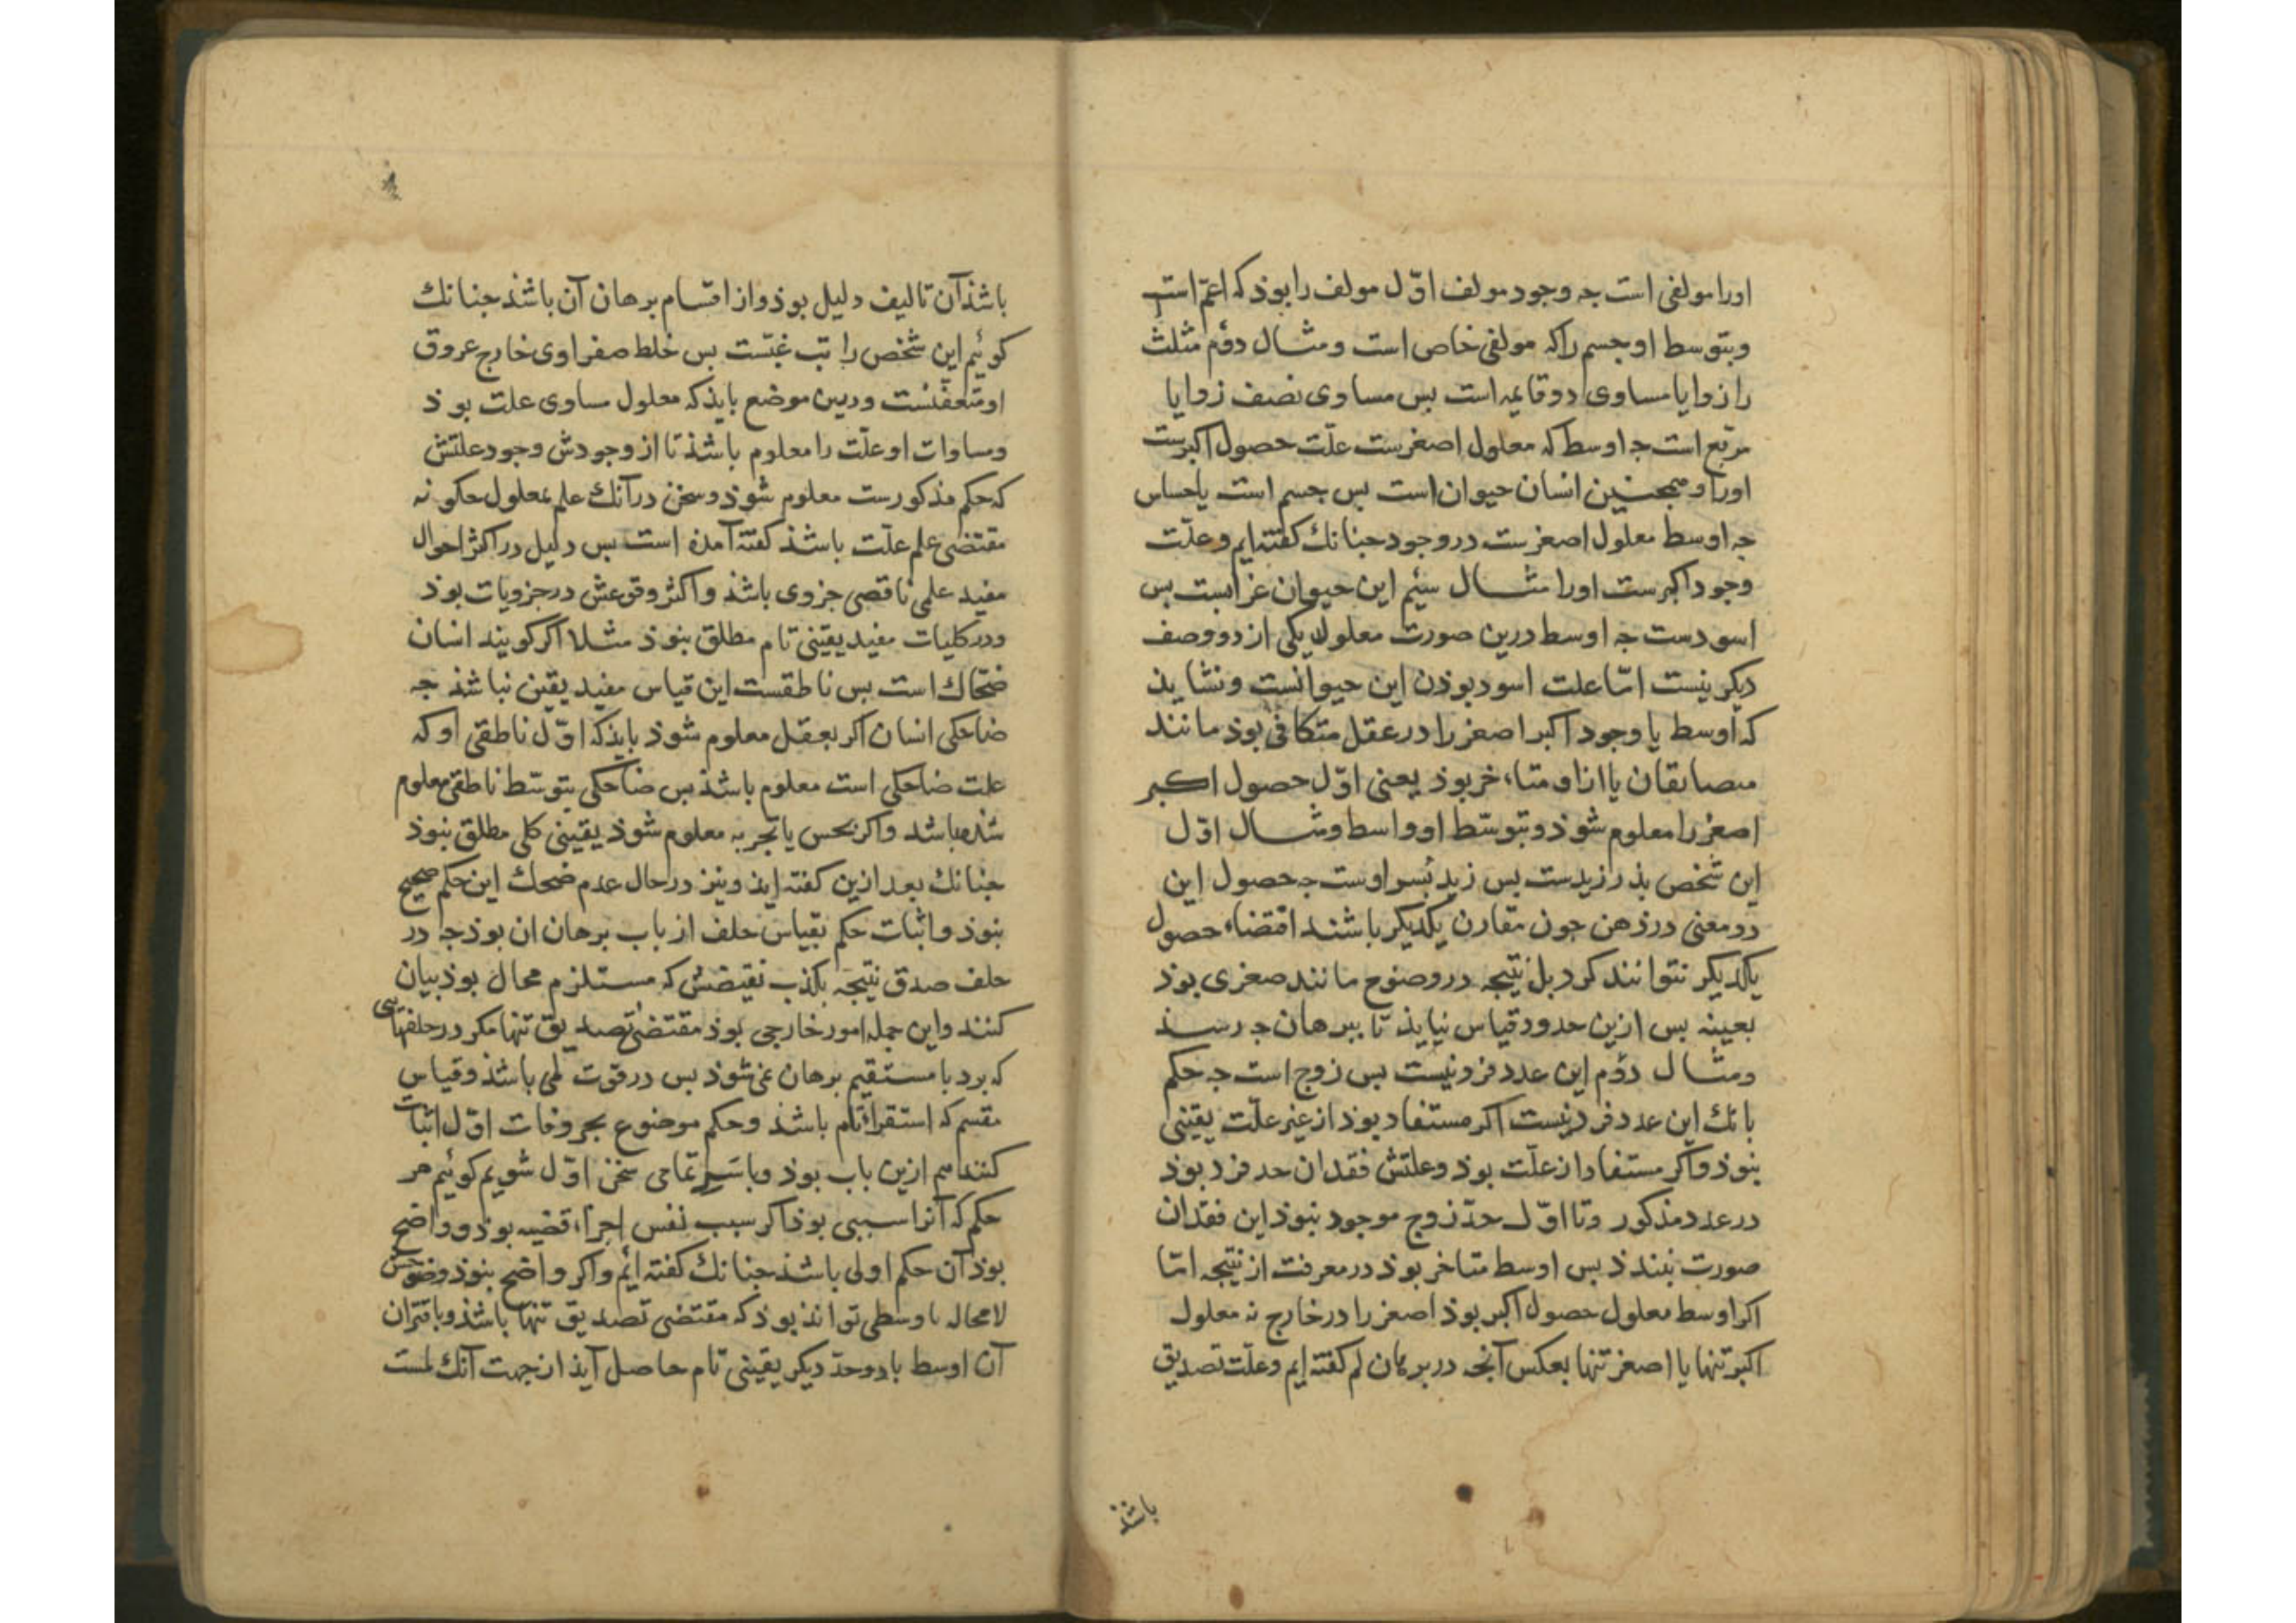 اورا مولفی است جه وجود مولف اوّل مولف را بوذ که اعمّ است
وبتوسط او جسم را که مولفی خاص است ومثال دوُم مثلث
را زوایا مساوی دو قایمه است بس مساوی نصف زوایا
مربّع است جه اوسط که معلول اصغرست علّت حصول اکبرست
اورا وهمجنین انسان حیوان است بس جسم است یا حساس
جه اوسط معلول اصغرست در وجود جنانك کفته ایم وعلّت
وجود اکبرست اورا مثال سیُم این حیوان غرابست بس
اسودست جه اوسط درین صورت معلول یکی از دو وصف
دیکر نیست امّا علت اسود بوذن این حیوانست ونشایذ
که اوسط با وجود اکبر اصغر را در عقل متکافی بوذ مانند
متضایفان یا ازو متاخر بوذ یعنی اوّل حصول اکبر
اصغر را معلوم شوذ وبتوسّط او اوسط ومثال اوّل
این شخص بذر زیدست بس زید بسر اوست جه حصول این
دو معنی در ذهن جون مقارن یکدیکر باشند اقتضاء حصول
یکدیکر نتوانند کرد بل نتیجه در وضوح مانند صغری بوذ
بعینه بس ازین حدود قیاس نیایذ تا ببرهان جه رسذ
ومثال دوُم این عدد فرد نیست بس زوج است جه حکم
بانك این عدد فرد نیست اکر مستفاد بوذ از غیر علّت یقینی
نبوذ واکر مستفاد از علّت بوذ وعلتش فقدان حد فرد بوذ
در عدد مذکور وتا اوّل حدّ زوج موجود نبوذ این فقدان
صورت نبندذ بس اوسط متاخر بوذ در معرفت از نتیجه امّا
اکر اوسط معلول حصول اکبر بوذ اصغر را در خارج نه معلول
اکبر تنها یا اصغر تنها بعکس آنجه در برهان لم کفته ایم وعلّت تصدیق
باشذ
باشذ آن تالیف دلیل بوذ واز اقسام برهان آن باشذ جنانك
کوئیم این شخص را تب غبّست بس خلط صفراوی خارج عروق
او متعفّنست ودرین موضع بایذ که معلول مساوی علت بوذ
ومساوات او علّت را معلوم باشذ تا از وجودش وجود علتش
که حکم مذکورست معلوم شوذ وسخن درآنك علم بمعلول جکونه
مقتضی علم علّت باشذ کفته آمذه است بس دلیل در اکثر احوال
مفید علمی ناقص جزوی باشذ واکثر وقوعش در جزویات بوذ
ودر کلیات مفید یقینی تام مطلق نبوذ مثلا اکر کویند انسان
ضحّاك است بس ناطقست این قیاس مفید یقین نباشذ جه
ضاحکی انسان اکر بعقل معلوم شوذ بایذ که اوّل ناطقی او که
علت ضاحکی است معلوم باشذ بس ضاحکی بتوسّط ناطقی معلوم
شذه باشد واکر بحس یا تجربه معلوم شوذ یقینی کلی مطلق نبوذ
جنانك بعد ازین کفته ایذ ونیز در حال عدم ضحك این حکم صحیح
نبوذ واثبات حکم بقیاس خلف از باب برهان ان بوذ جه در
خلف صدق نتیجه بکذب نقیضش که مستلزم محال بوذ بیان
کنند واین جمله امور خارجی بوذ مقتضی تصدیق تنها مکر در خلفهایی
که برد با مستقیم برهان نمی شوذ بس در قوت لمی باشذ وقیاس
مقسم که استقراء تام باشذ وحکم موضوع بجزویات اوّل اثبات
کنند هم ازین باب بوذ وباسر تمامی سخن اوّل شویم کوئیم هر
حکم که آنرا سببی بوذ اکر سبب نفس اجزاء قضیه بوذ وواضح
بوذ آن حکم اولی باشذ جنانك کفته ایُم واکر واضح نبوذ وضوحش
لامحاله باوسطی تواند بوذ که مقتضی تصدیق تنها باشذ وباقتران
آن اوسط با دو حدّ دیکر یقینی تام حاصل آیذ از جهت آنك لمست